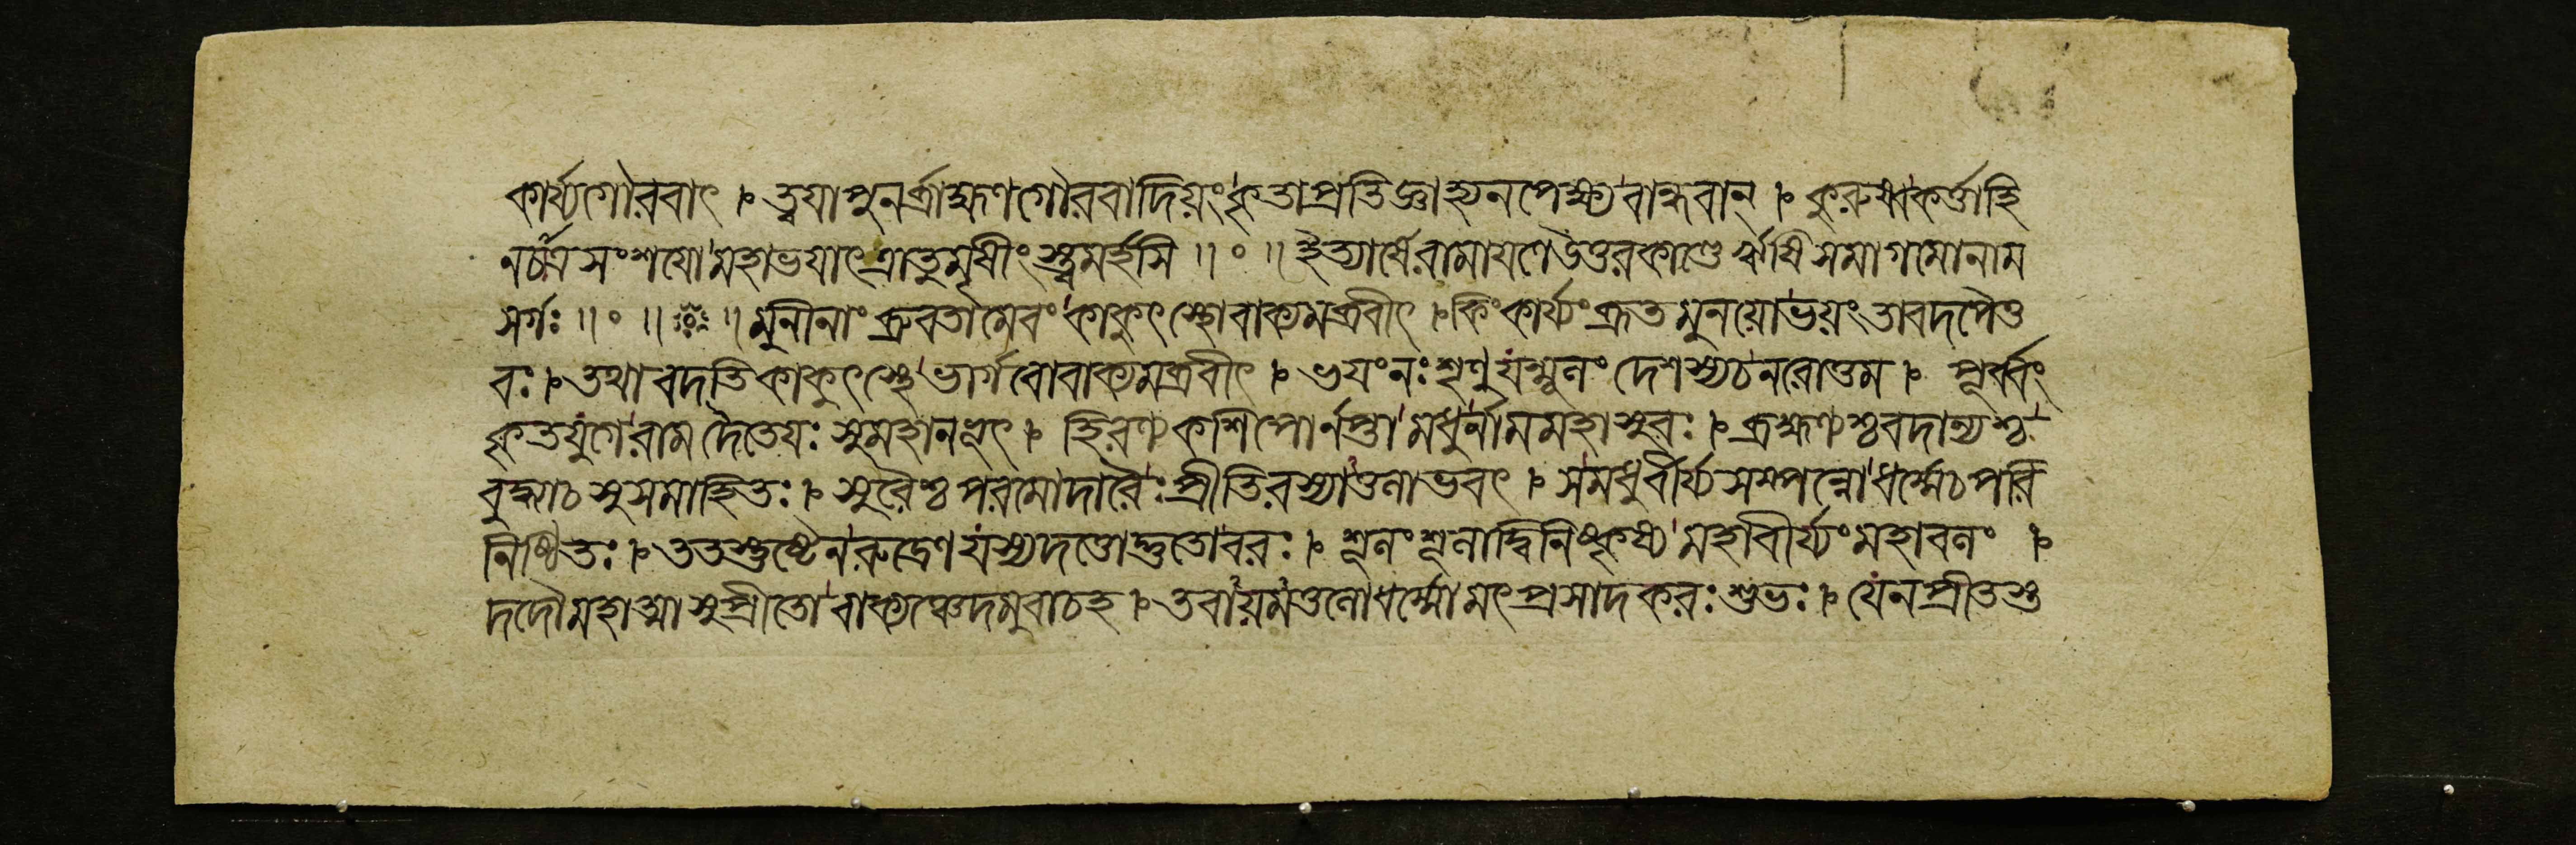 কার্য্যগৌরবাৎ । ত্বযাপুনর্ব্রাহ্মণগৌরবাদিয়ংকৃতাপ্রতিজ্ঞাহ্যনপেক্ষ্যবান্ধবান্ । কুরুষ্বকর্ত্তাহি
নচাত্রসংশযোমহাভযাৎত্রাতুমৃষীংস্ত্বমর্হসি ॥ ० ॥ ইত্যার্ষেরামাযণেউত্তরকাণ্ডেঋষিসমাগমোনাম
সর্গঃ ॥ ० ॥ ॥ মুনীনাংব্রুবতামেবংকাকুৎস্থোবাক্যমব্রবীৎ । কিংকার্য্যংব্রূতমুনয়োভয়ংতাবদপৈতু
বঃ । তথাবদতিকাকুৎস্থেভার্গবোবাক্যমব্রবীৎ । ভযংনঃশৃণুযন্মূলংদেশস্যচনরোত্তম । পূর্ব্বং
কৃতযুগেরামদৈতেযঃসুমহানভূৎ । হিরণ্যকশিপোর্নপ্তামধুর্নামমহাসুরঃ । ব্রহ্মণ্যশ্চবদান্যশ্চ
বুদ্ধ্যাচসুসমাহিতঃ । সুরৈশ্চপরমোদারৈঃপ্রীতিরস্যাতুলাভবৎ । সমধুর্বীর্য্যসম্পন্নোধর্ম্মেচপরি
নিষ্ঠিতঃ । ততস্তুষ্টেনরুদ্রেণযস্যদত্তোদ্ভুতোবরঃ । শূলংশূলাদ্বিনিষ্কৃষ্যমহাবীর্য্যংমহাবলং ।
দদৌমহাত্মাসুপ্রীতোবাক্যঞ্চেদমুবাচহ । তবায়মতুলোধর্ম্মোমৎপ্রসাদকরঃশুভঃ । যেনপ্রীতস্তু